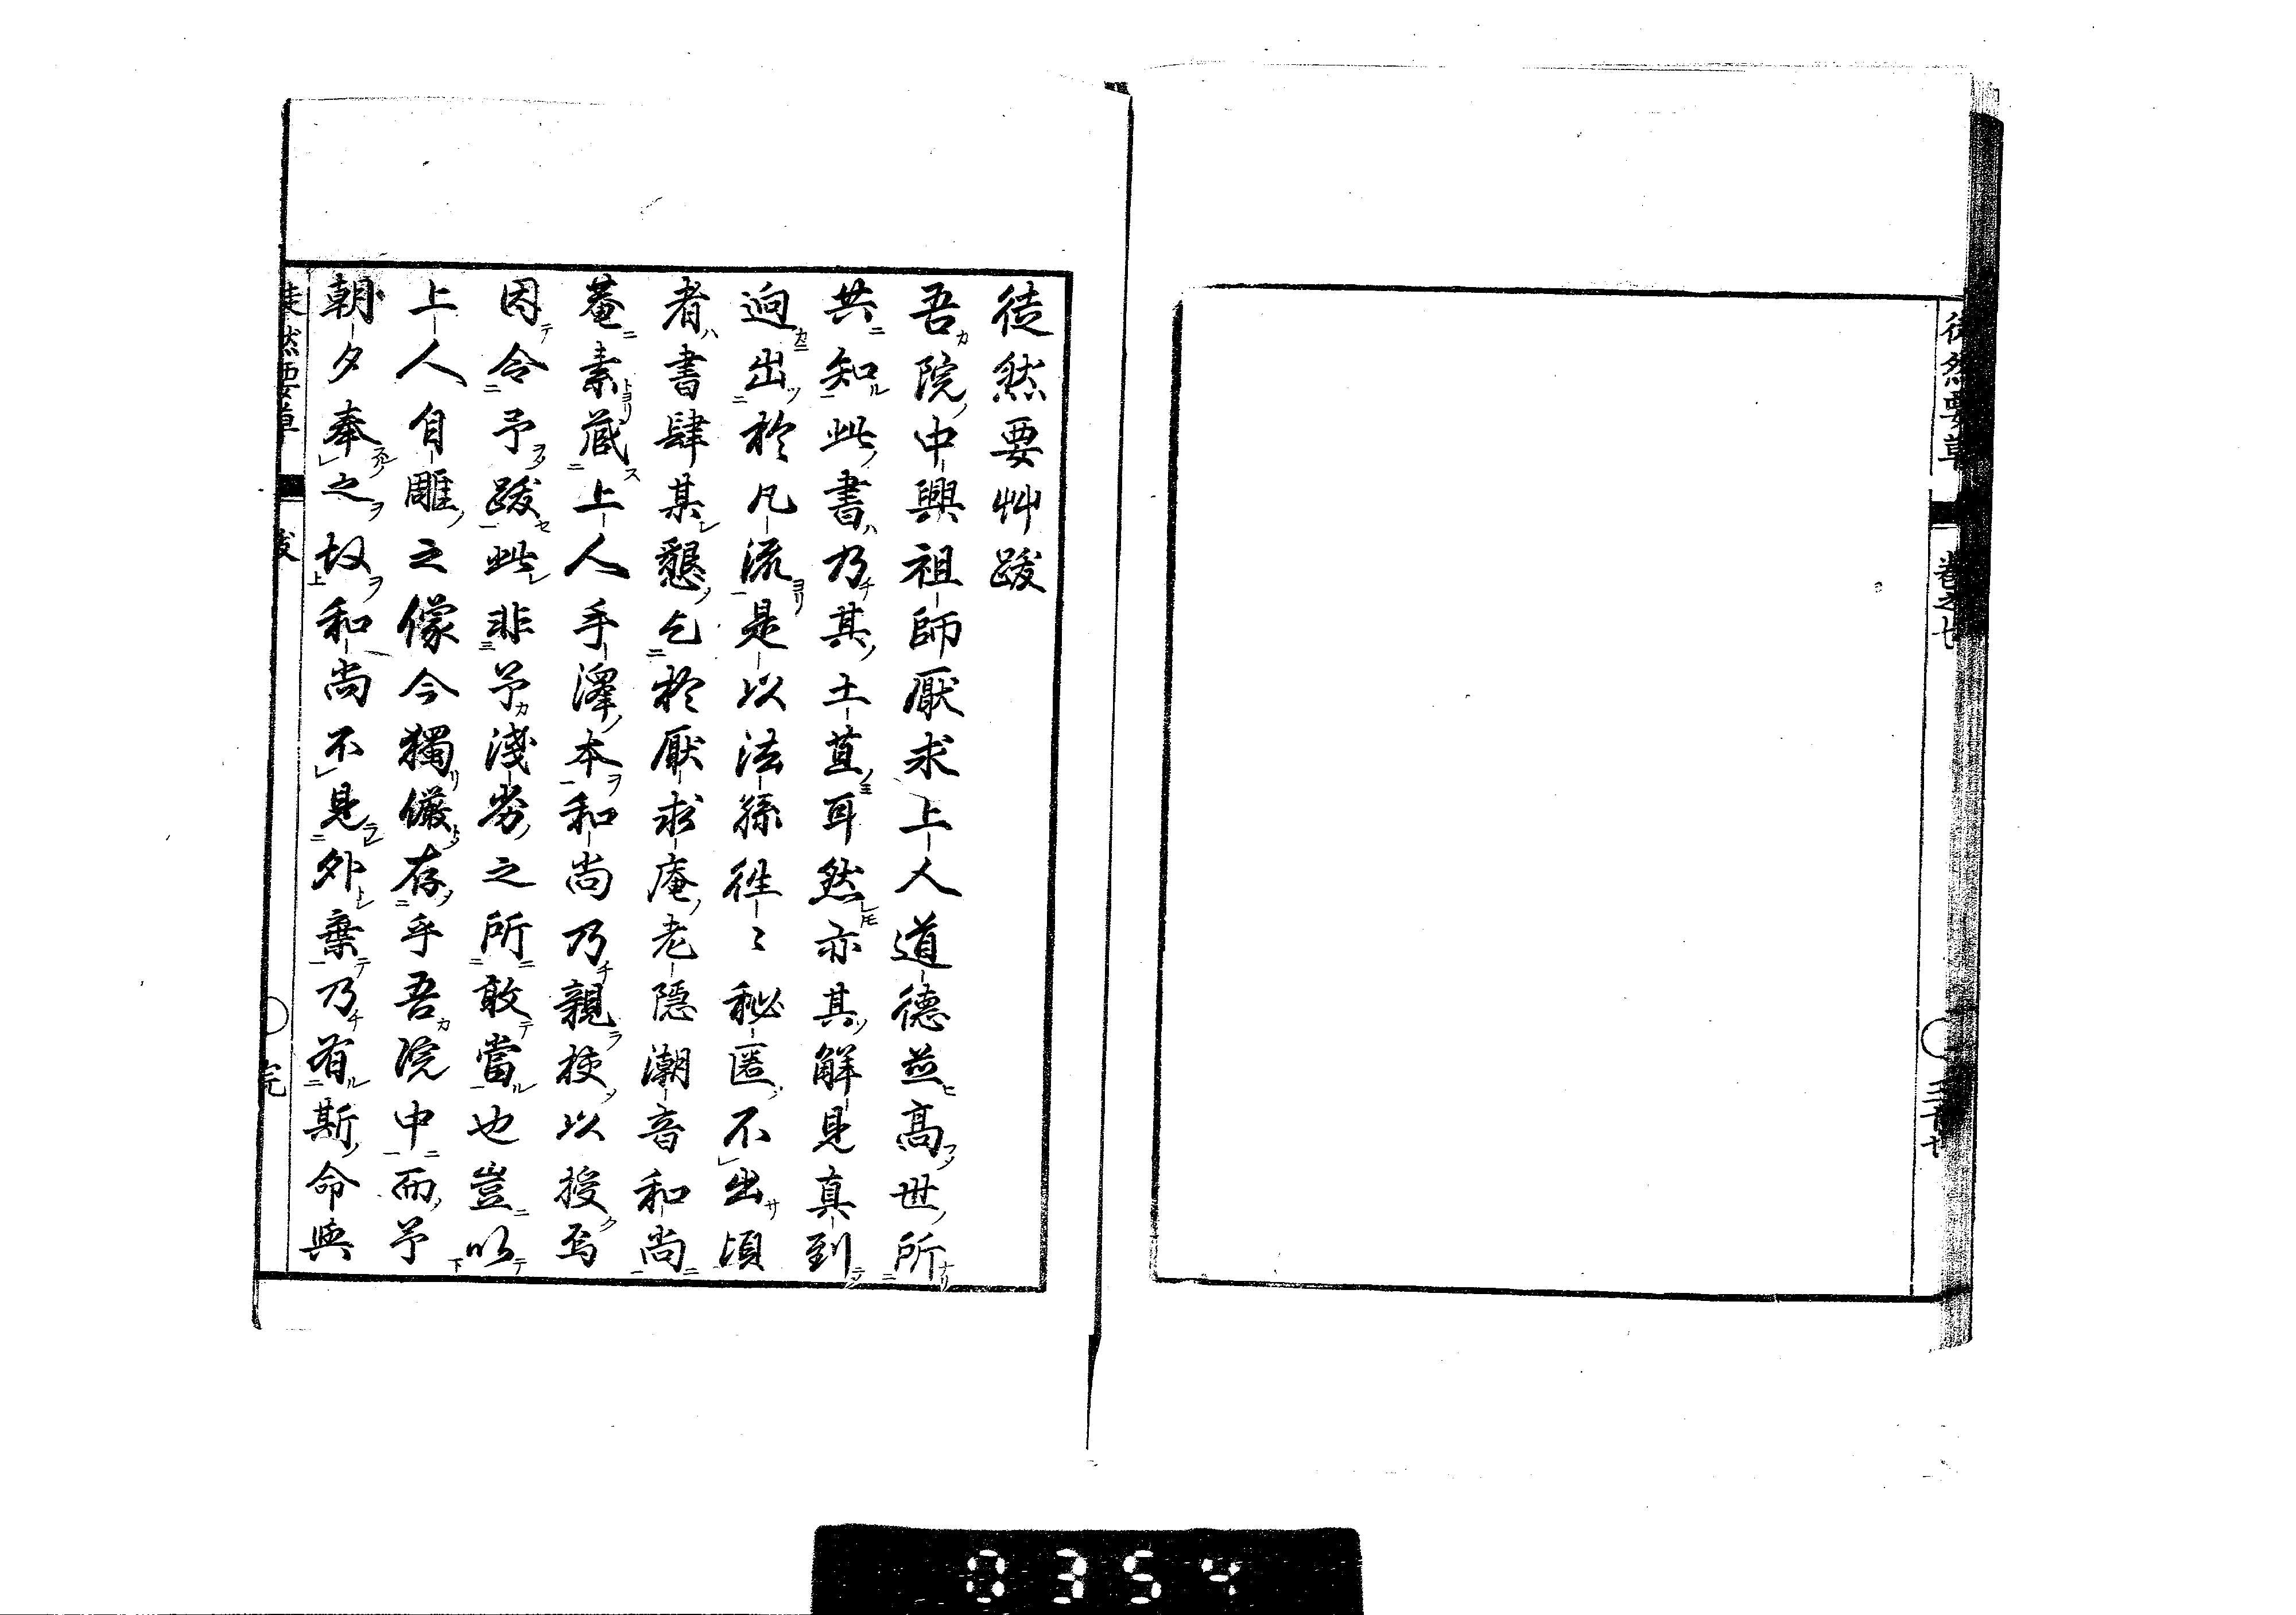 徒然要草
卷之七
三十七
徒然要艸跋
吾院中興祖師厭求上人道德並高世所
共知此書乃其土苴耳然亦其解見真到
逈出於凡流是以法孫徃〻秘匿不出頃
者書肆某懇乞於厭求庵老隱潮音和尚
菴素蔵上人手澤本和尚乃親挍以授焉
因令予跋此非予淺劣之所敢當也豈以
上人自雕之像今獨儼存乎吾院中而予
朝夕奉之故和尚不見外棄乃有斯命與
徒然要草
跋
完
0354